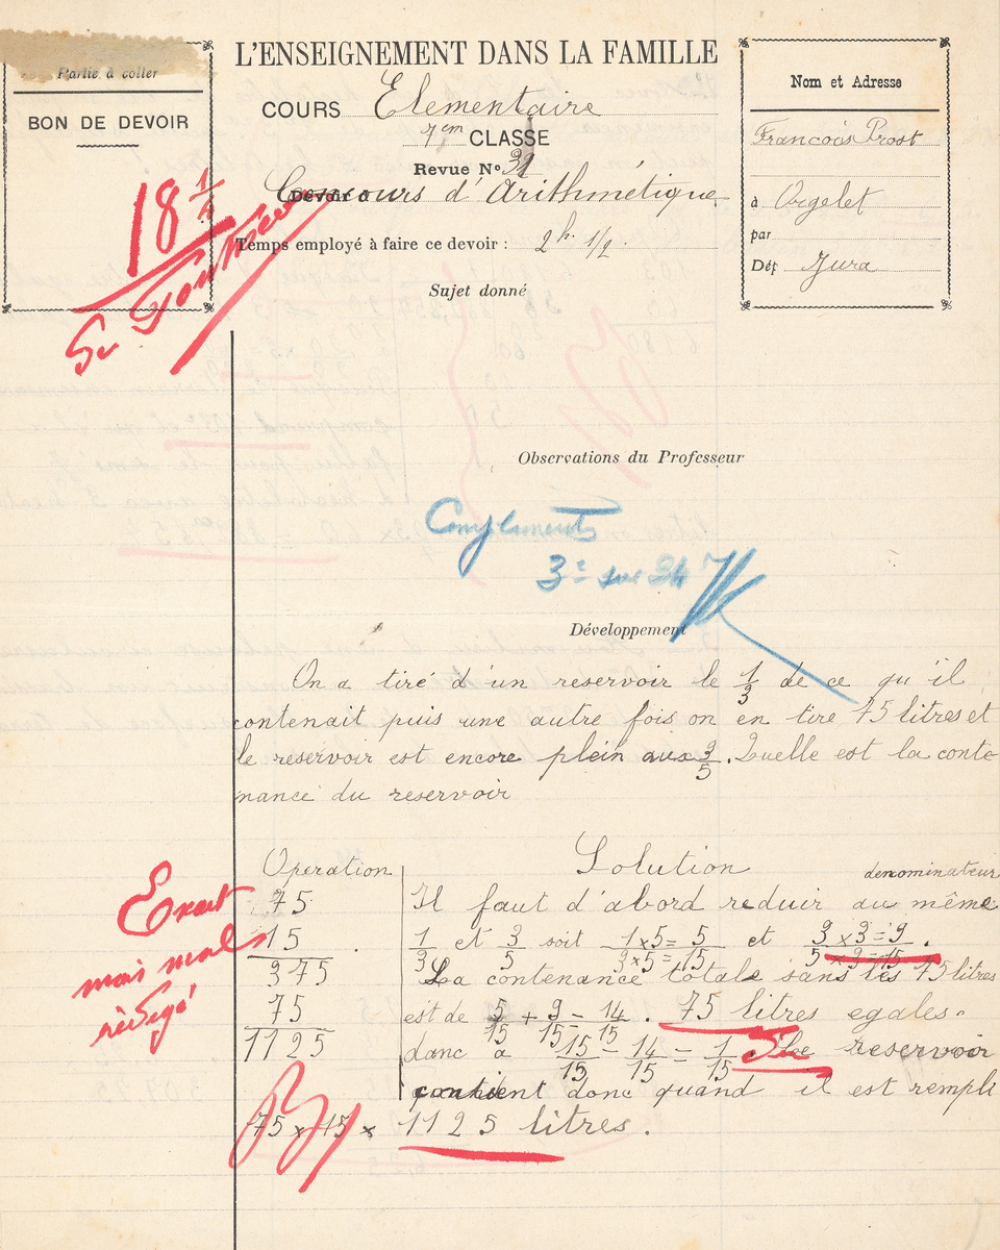 Partie à coller
BON DE DEVOIR
18 1/4
L'ENSEIGNEMENT DANS LA FAMILLE
COURS Elementaire
7em CLASSE
Revue No 31
Concours d'Arithmétique
Temps employé à faire ce devoir : 2 h. 1/2.
Sujet donné
Nom et Adresse
Francois Prost
à Orgelet
par
Dép Jura
Observations du Professeur
Compliments
3e sur 34
Développement
On a tiré d'un reservoir le 1/3 de ce qu'il
contenait puis une autre fois on en tire 75 litres et
le reservoir est encore plein aux 3/5. Quelle est la conte
nance du reservoir
Exact
mais mal
rédigé
Operation
75
15
375
75
1125
Solution
denominateur
Il faut d'abord reduir au même
1/3 et 3/5 soit 1x5=5/3x5=15 et 3x3=9/5x3=15.
La contenance totale sans les 75 litres
est de 5/15 + 9/15 = 14/15. 75 litres egales
donc a 15/15 - 14/15 = 1/15. Le reservoir
contient donc quand il est rempli
75 x 15 x 1125 litres.